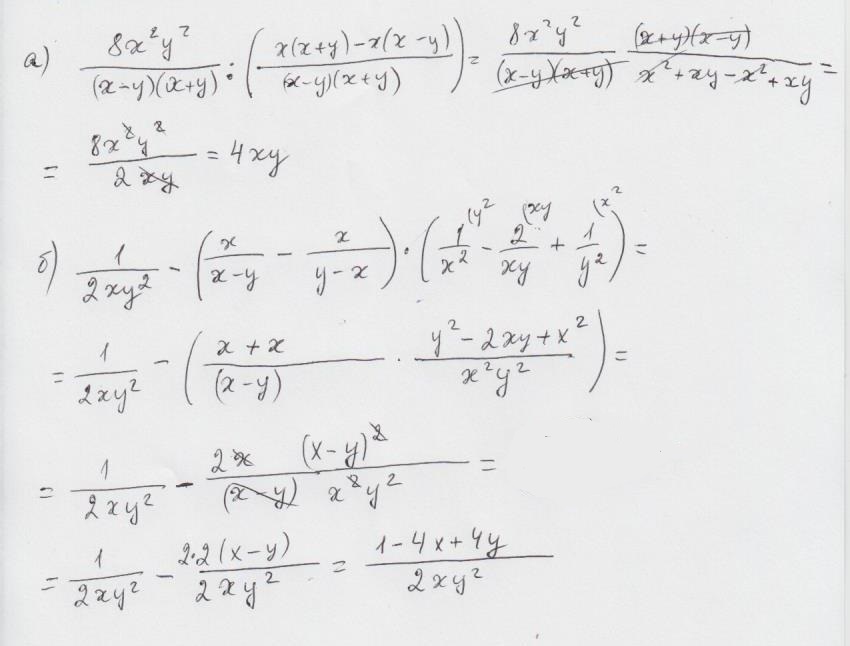 а) 8x²y² / (x-y)(x+y) : ( x(x+y)-x(x-y) / (x-y)(x+y) ) = 8x²y² / (x-y)(x+y) (x+y)(x-y) / x²+xy-x²+xy =
= 8x²y² / 2xy = 4xy
б) 1 / 2xy² - ( x / x-y - x / y-x ) · ( 1 / x² (y² - 2 / xy (xy + 1 / y² (x² ) =
= 1 / 2xy² - ( x+x / (x-y) · y²-2xy+x² / x²y² ) =
= 1 / 2xy² - 2x (x-y)² / (x-y) x²y² =
= 1 / 2xy² - 2·2(x-y) / 2xy² = 1-4x+4y / 2xy²